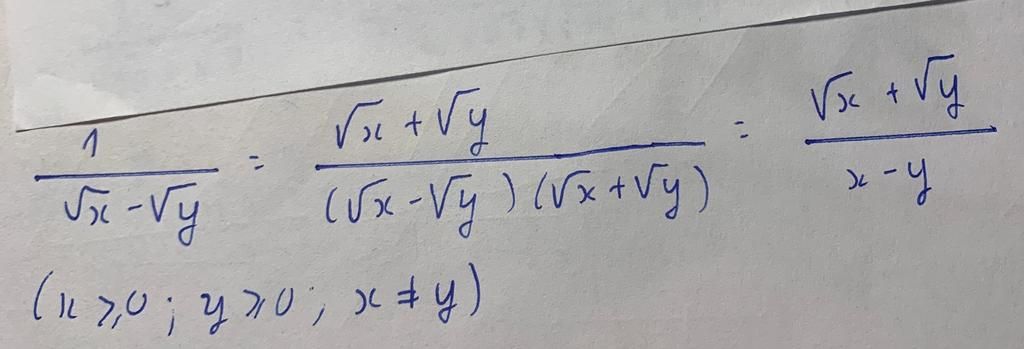 1/(√x - √y) = (√x + √y)/((√x - √y)(√x + √y)) = (√x + √y)/(x - y)
(x ≥ 0; y ≥ 0; x ≠ y)